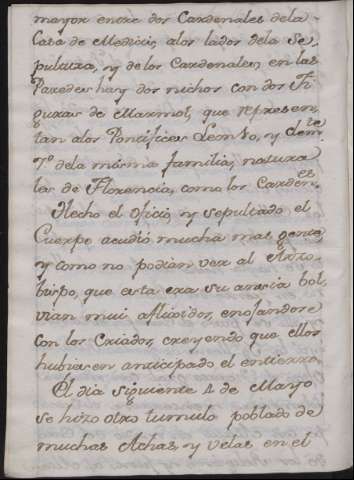 mayor entre dos Cardenales dela
Casa de Medicis, alos lados dela Se,
pultura, y de los Cardenales, en las
Paredes hay dos nichos con dos Fi,
guras de Marmol, que represen,
tan alos Pontifices Leon X.o, y Clem.te
7.o dela misma familia, natura
les de Florencia, como los Carden.es
Hecho el oficio, y sepultado el
Cuerpo acudiò mucha mas gente
y como no podian ver al Arzo,
bispo, que esta era su ansia bol,
vian mui afligidos, enojandose
con los Criados, creyendo que ellos
hubiesen anticipado el entierro.
El dia siguiente 4 de Mayo
se hizo otro tumulo poblado de
muchas Achas, y velas en el